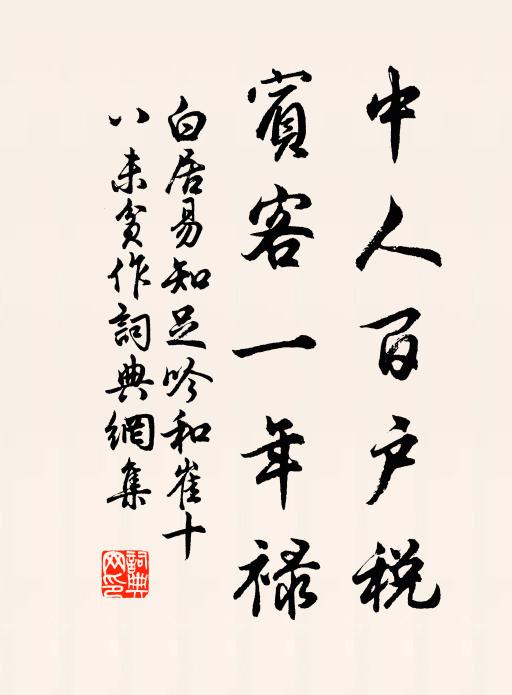 中人百户税
賓客一年禄
白居易知足吟和崔十
八未貧作詞典網集
詞典
网印